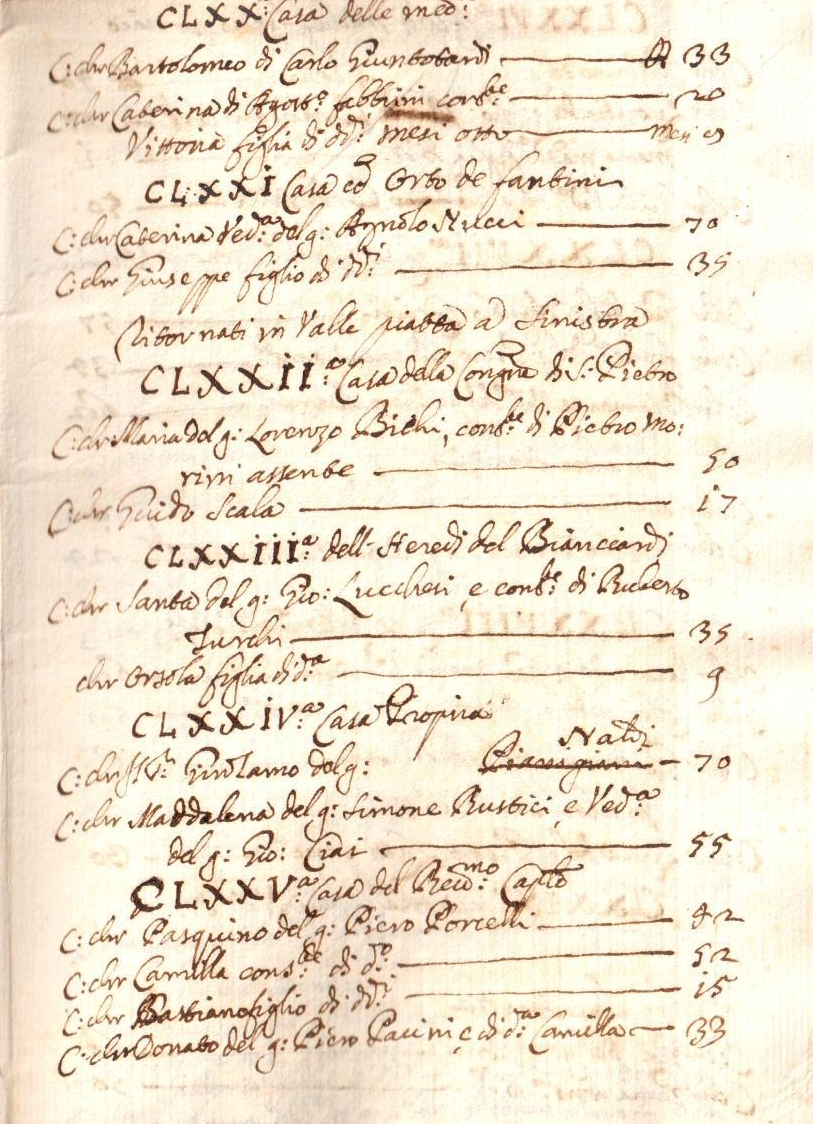 CLXX: Casa delle med:
C: chr Bartolomeo di Carlo Giuntotardi 33
C: chr Caterina di Agost.o fabbrini cons.te 20
Vittoria figlia di dd.i mesi otto mesi
CLXXI Casa ed Orto de fantini
C: chr Caterina Ved.a del q: Agnolo Nucci 70
C: chr Giuseppe figlio di dd.i 35
Ritornati in Valle piatta a sinistra
CLXXII.a Casa della Congne di S: Pietro
C: chr Maria del q: Lorenzo Bichi, cons.te di Pietro Mo:
rini assente 50
C: chr Guido Scala 17
CLXXIII.a dell' Heredi del Bianciardi
C: chr Santa del q: Gio: Lucchesi, e cons.te di Ruberto
Turchi 35
chr Orsola figlia di d.a 9
CLXXIV.a Casa Propria
Naldi
C: chr Girolamo del q: Pianigiani 70
C: chr Maddalena del q: Simone Rustici, e Ved.a
del q: Gio: Ciai 55
CLXXV.a Casa del Rev.mo Caplo
C: chr Pasquino del q: Piero Porcelli 42
C: chr Camilla cons.te di d.o 52
C: chr Bastiano figlio di dd.i 15
C: chr Donato del q: Piero Pacini, e di d.a Camilla 33